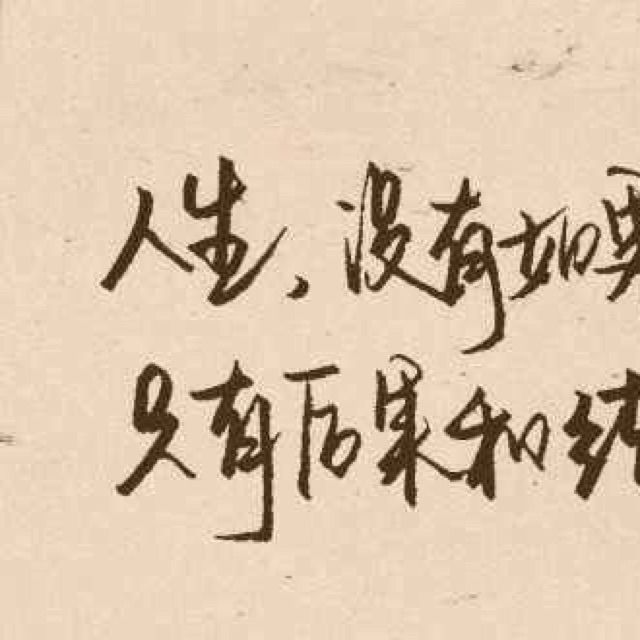 人生,没有如果
只有后果和结